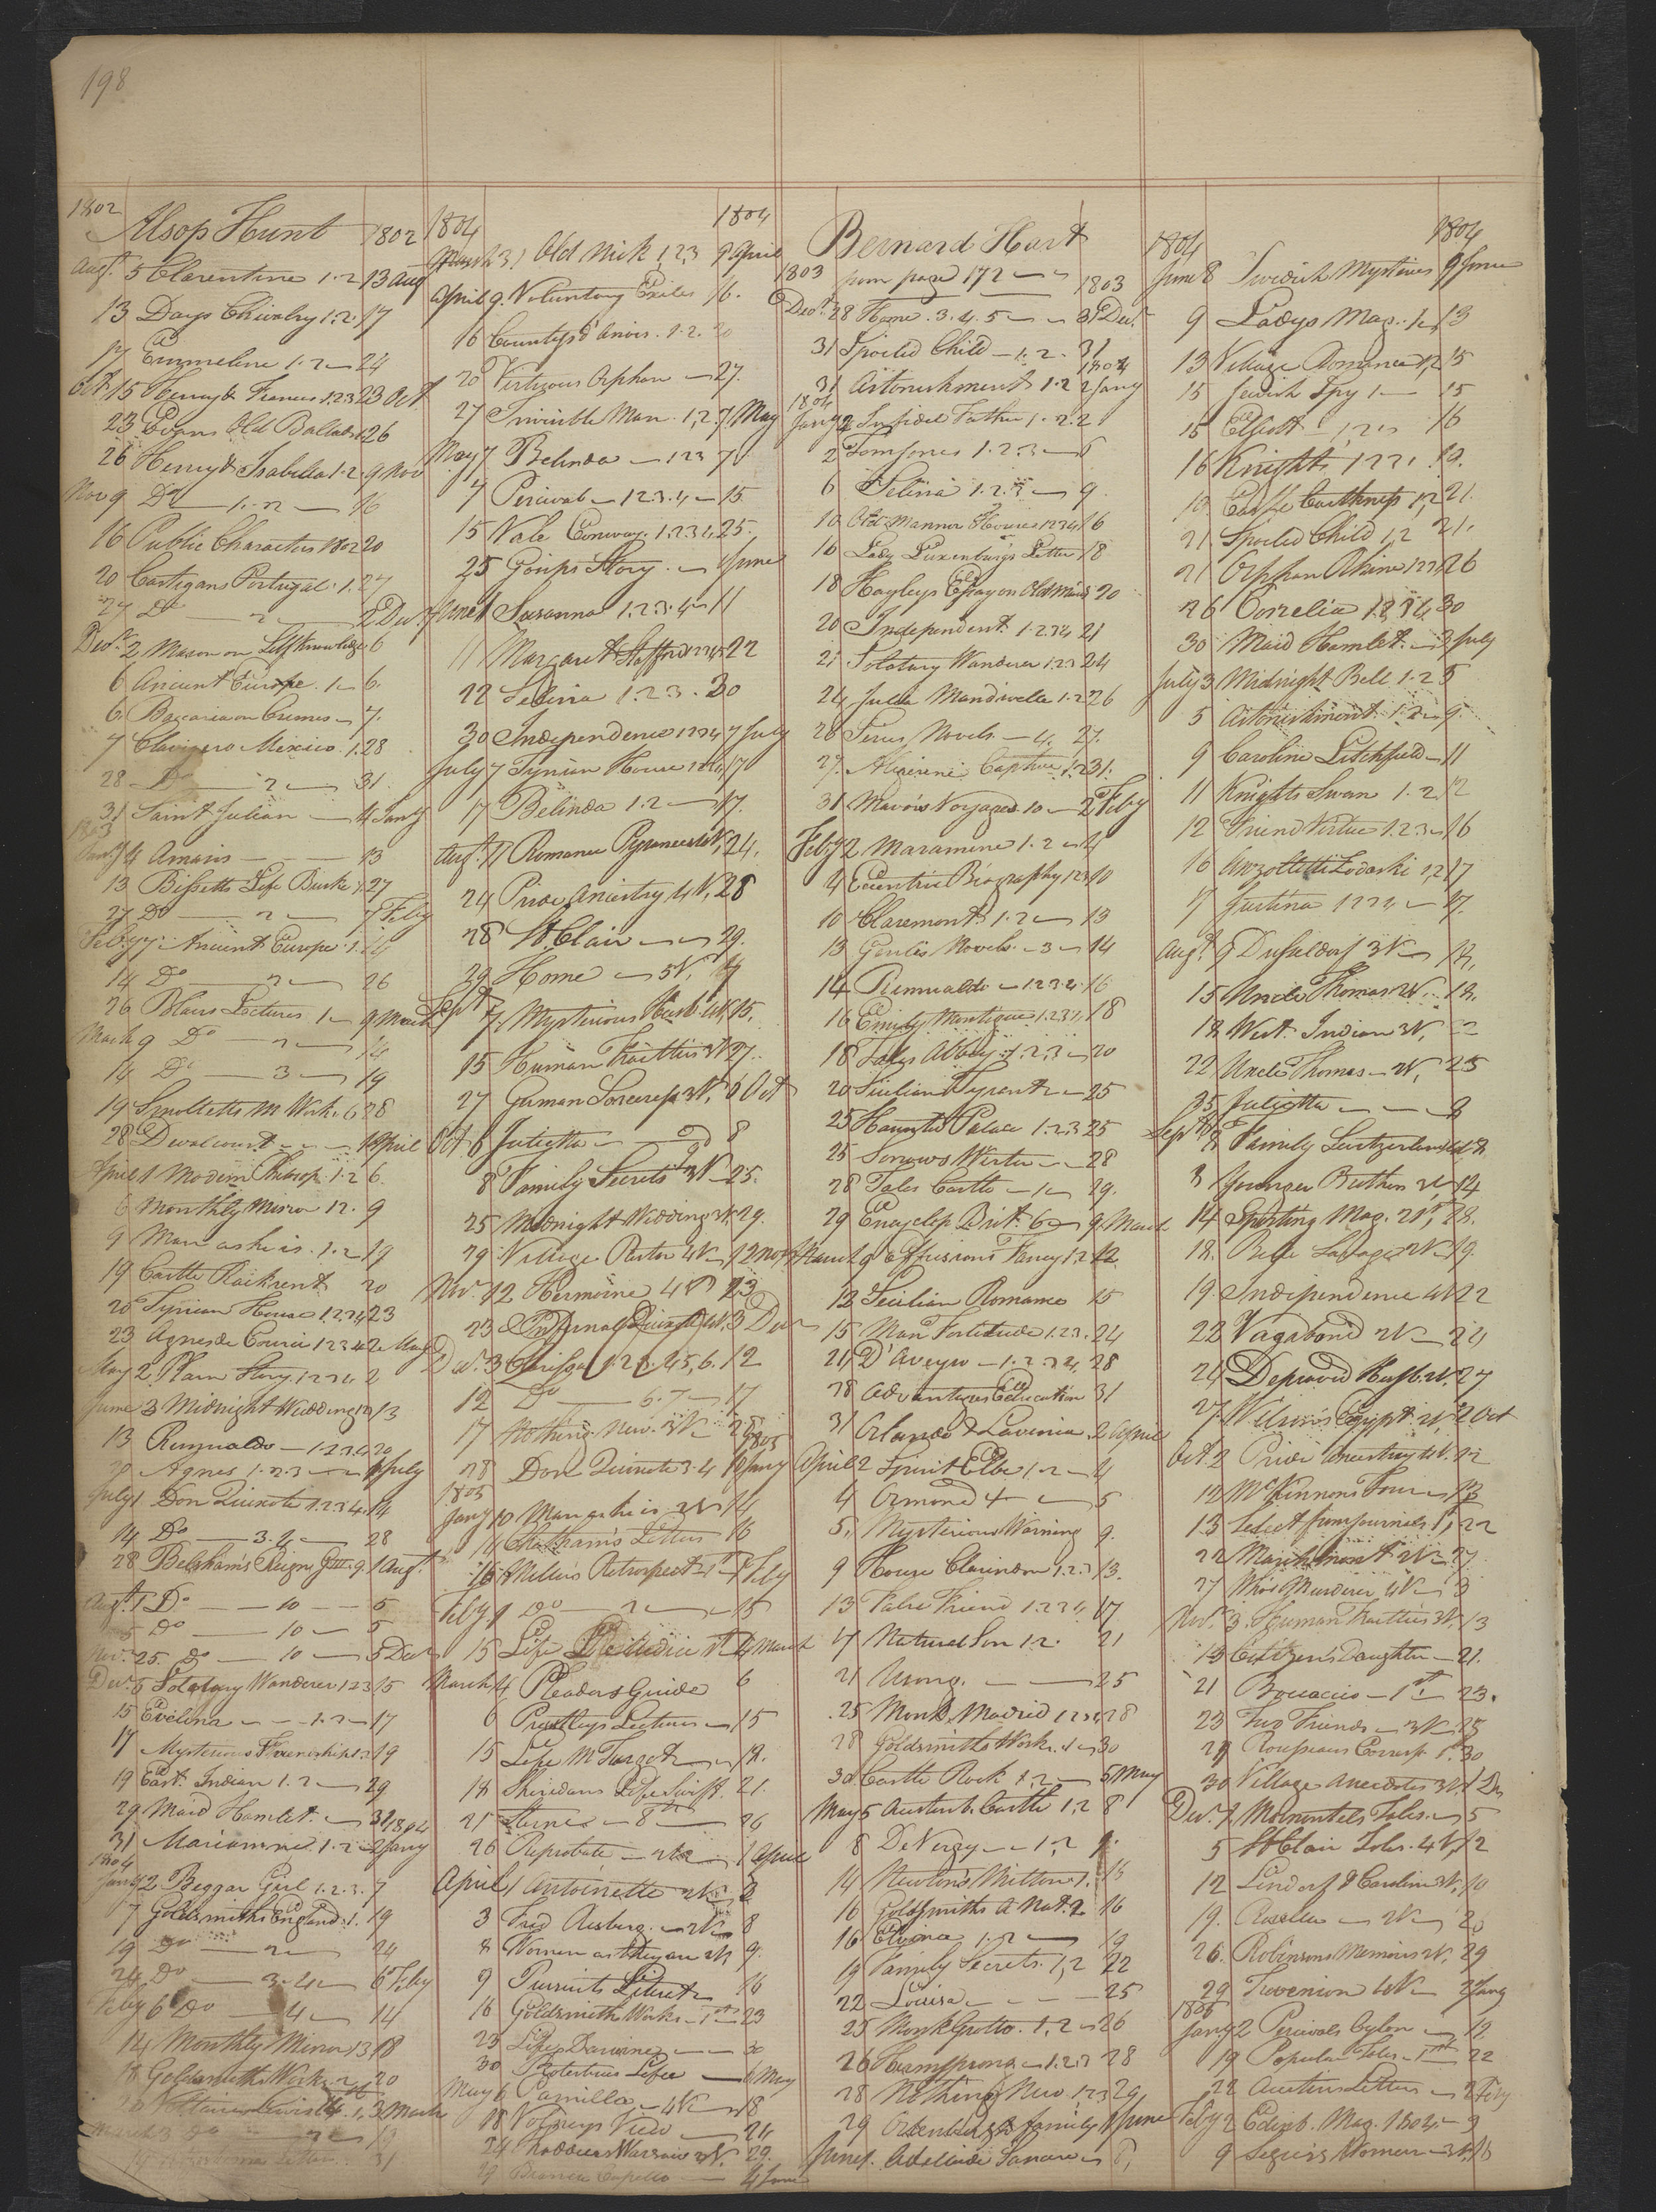 198
1802
Alsop Hunt 1802
Augt. 5 Clarentine 1.2 13 Aug
13 Days Chivalry 1.2. 17
17 Emmeline 1.2 24
Oct. 15 Henry & Frances 1.2.3 23 Oct
23 Evans Old Ballads 1 26
26 Henry & Isabella 1.2. 9 Nov
Nov 9 Do 1.2 16
16 Public Characters 1802 20
20 Costigans Portugal. 1. 27
27 Do 2 2 Decr.
Decr. 2 Mason on Self Knowledge 6
6 Ancient Europe. 1 6.
6 Beccaria on Crimes 7.
7 Clavigero Mexico. 1. 28
28 Do 2 31.
31 Saint Julian 4 Jany
1803
Jany 4 Amasis 13
13 Bissetts Life Burke 1. 27
27 Do 2 7 Feby
Feby 7 Ancient Europe. 1. 14
14 Do 2 26
26 Blairs Lectures 1 9 March
March 9 Do 2 14
14 Do 3 19
19 Smolletts M Works 6 28
28 Devalcourt 1 April
April 1 Modern Philosop. 1.2 6.
6 Monthly Mirror 12. 9
9 Man as he is. 1.2 19
19 Castle Rackrent 20
20 Tynian House 1.2.3.4 23
23 Agnes de Courci 1.2.3.4 2 May
May 2 Plain Story. 1.2.3.4 2
June 3 Midnight Wedding 1.2 13
13 Rimualdo 1.2.3.4 20
20 Agnes 1.2.3 1 July
July 1 Don Quixote 1.2.3.4. 14
14 Do 3.4 28
28 Belshams Reign Geo. 9. 1 Augt.
Augt. 1 Do 10 5
5 Do 10 5
Nov. 25 Do 10 5 Decr
Decr. 5 Solatary Wanderer 1.2.3 15
15 Evelina 1.2 17
17 Mysterious Friendship 1.2 19
19 East Indian 1.2 29
29 Maid Hamlet. 31
31 Mariamne 1.2 2 Jany
1804
Jany 2 Beggar Girl 1.2.3. 7
7 Goldsmiths England. 1. 19
19 Do 2 24
24 Do 3.4 6 Feby
Feby 6 Do 4 14
14 Monthly Mirror 13 18
18 Goldsmiths Works 2 20
March 3 Do 2 13
1804 1804
March 31 Old Nick 1,2,3 9 April
April 9. Voluntary Exiles 16.
16 Countess d'Anois. 1.2. 20
20 Virtuous Orphan 27.
27 Invisible Man. 1,2. 7 May
May 7 Belinda 1.2.3 7
7 Percival 1.2.3.4 15
15 Vale Conway. 1.2.3.4. 25.
25 Gossips Story. 1 June
June 1 Susanna 1.2.3.4 11
11 Margaret Stafford 1.2.3.4.5 22
22 Selina 1.2.3. 30
30 Independence 1.2.3.4 7 July
July 7 Tynian House 1.2.3.4 17
17 Belinda 1.2 17.
Augt. 17 Romance Pyrenees 4V. 24.
24 Pride Ancestry 4 V. 28
28 St. Clair 29.
29 Home 5V.
Sept 7. Mysterious Husb. 4V. 15.
15 Human Frailties 3V 27.
27 German Sorceress 3V. 6 Oct
Oct 6 Julietta 8
8 Family Secrets 3V 25.
25 Midnight Wedding 3V. 29.
29 Village Pastor 4V 12 Nov
Nov. 12 Hermione 4V 23
23 Infernal Quixote 4V. 3 Decr
Decr. 3 Clarissa 1.2.3.4.5.6. 12
12 Do 6.7 17
17 Nothing New. 3V 28
28 Don Quixote 3.4 10 Jany
1805
Jany 10 Man as he is. 3V 14
14 Chathams Letters 16
16 Millers Retrospect 1st 7 Feby
Feby 7 Do 2 15
15 Life 1st 4 March
March 4 Pleaders Guide 6
6 Priestleys Lectures 15
15 Life M Turgot 18.
18 Sheridans Life Swift. 21.
21 Sterne 8 26
26 Reprobate 2V 1 April
April 1 Antoinette 2V 3
3 Fred Risberg. 2V 8
8 Women as they are 2V 9.
9 Pursuits Literat 16
16 Goldsmith Works 1st 23
23 Life Darwin 30
30 Life 6 May
May 6 Camilla 4V 18
18 Volneys View 24
24 Thaddeus Warsaw 3V. 29.
29 Bianca Capello 4 June
Bernard Hart
1803 from page 172 1803
Decr. 28 Home. 3.4.5 31 Decr.
31 Spoiled Child 1.2. 31
1804
31 Astonishment 1.2 2 Jany
1804
Jany 2 Infidel Father 1.2. 2
2 Tom Jones 1.2.3 6
6 Selina 1.2.3 9
10 Old Mannor House 1.2.3.4 16
16 Lady Luxenburgs Letter 18
18 Hayleys Essay on Old Maids 20
20 Independent. 1.2.3.4 21
21 Solatary Wanderer 1.2.3 24
24 Julia Mandville 1.2 26
26 Series Novels 4. 27.
27. Algerine Captive 1.2 31.
31 Mavors Voyages 10 2 Feby
Feby 2 Mariamne 1.2 4
4 Eccentric Biography 1.2.3 10
10 Claremont 1.2 13
13 Genlis Novels 3 14
14 Rimualdo 1.2.3.4. 16
16 Emily Montague 1.2.3.4. 18
18 Tales Abbey. 1.2.3 20
20 Sicilian Tyrant 25
25 Haunted Palace 1.2.3 25
25 Sorrows Werter 28
28 Tales Castle 1 29.
29 Encyclop. Brit. 6 9. March
March 9 Effusions Fancy 1.2 12
12 Sicilian Romance 15
15 Man Fortitude 1.2.3. 24
24 D'Aveyro 1.2.3.4 28
28 Advantages Education 31
31 Orlando & Lavinia. 2 April
April 2 Spirit Elbe 1.2 4
4 Ormond 5
5. Mysterious Warning 9.
9 House Clarindon 1.2.3 13.
13 False Friend 1.2.3.4 17
17 Natural Son 1.2. 21
21 25
25 Monk Madrid 1.2.3.4 28
28 Goldsmiths Works. 1 30
30 Castle Rock 1.2 5 May
May 5 Austenb. Castle 1.2 8
8 De Vergy 1.2 9.
14 Newtons Milton 1. 15
16 Goldsmiths A Nat. 2 16
16 Elvina 1.2 19
19 Family Secrets. 1,2 22
22 Louisa 25
25 Monk Grotto. 1,2 26
26 Hermsprong 1.2.3 28
28 Nothing New. 1,2,3 29
29 Ortenburg Family 1 June
June 1. Adelaide Sancerre 8,
1804 1804
June 8 Swedish Mysteries 9 June
9 Ladys Mag. 13
13 Village Romance 1,2 15
15 Jewish Spy 1 15
15 Elliott 1,2, 16
16 Knights 1.2.3. 19.
19. Castle Caithness 1,2 21.
21. Spoiled Child 1,2 21.
21 Orphan Rhine 1.2.3.4 26
26 Corelia 1.2.3.4 30
30 Maid Hamlet. 3 July
July 3 Midnight Bell 1.2 5
5 Astonishment 1.2 9.
9 Caroline Litchfield 11
11 Knights Swan 1.2 12
12 Friend Virtue 1.2.3 16
16 1,2 17
17 Justina 1.2.3. 17.
Augt. 9 Dusseldorf 3V
15 Uncle Thomas 2V. 18.
18 West Indian 3V. 22
22 Uncle Thomas 2V. 25
25 Julietta 3
Sept Family
3 Younger Brother 2V 14
14 Sporting Mag. 21st, 18.
18. Belle Sauvage 2V 19.
19. Independence 4V 22
22 Vagabond 2V 24
24 Depraved Husb. 2V. 27
27 Wilson's Egypt. 2V. 2 Oct
Oct. 2 Pride Ancestry 4V. 12
12 McKinnons Tour 13
13 Select fum Journals 1, 22
22 Marchmont 2V 27
27 Who's Murderer 4V 3
Nov. 3. Human Frailties 3V. 13
13 Citizens Daughter 21.
21 Boccacio 1st 23.
23 Two Friends 3V 28
28 Rousseaus Corresp. 1. 30
30 Village Anecdotes 3V. 1 Dec
Decr. 1 Marmontels Tales. 5
5 St Clair Isles. 4V. 12
12 Lindorf & Caroline 3V. 19
19. Rosella 2V 26
26. Robinsons Memoirs 2V. 29
29 Trevanion 4V 2 Jany
1805
Jany 2 Percivals Ceylon 19
19 Popular Tales. 1st 22
22 Austins Letters 2 Feby
Feby 2 Edinb. Mag. 1804. 9
9 Segurs Women 3V. 16